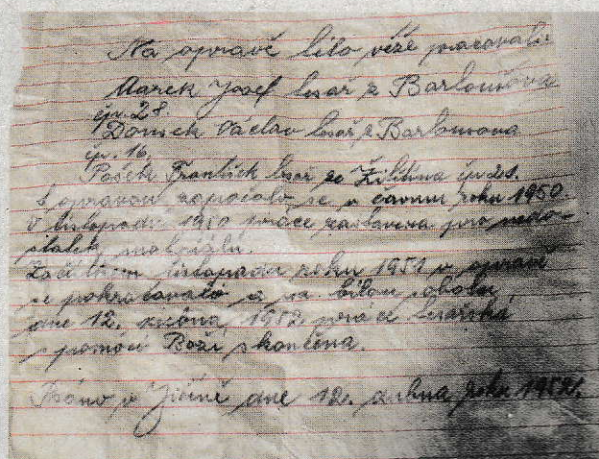 Na opravě této věže pracovali:
Marek Josef tesař z Bartoušova
čp. 28.
Domek Václav tesař z Bartoušova
čp. 16.
Pošek František tesař ze Žitětína čp. 25.
S opravou započalo se v červnu roku 1950.
V listopadu 1950 práce zastavena pro nedo-
statek materiálu.
Začátkem listopadu roku 1951 v opravě
se pokračovalo a na bílou sobotu
dne 12. 1952 práce tesařská
s pomocí Boží skončena.
Psáno v Jičíně dne 12. dubna roku 1952.